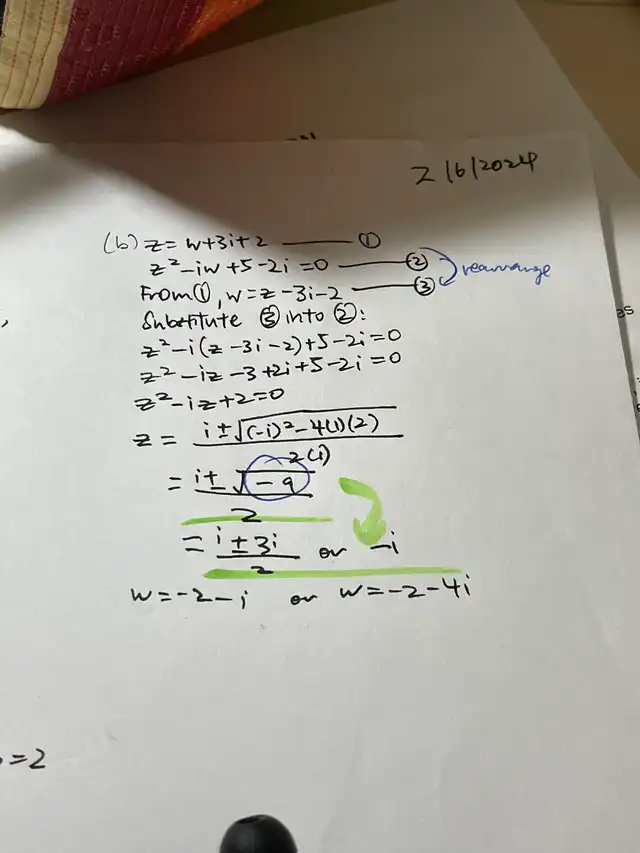 2/6/2024
(b) z = w+3i+2 ——— ①
z²-iw+5-2i=0 ——— ②
rearrange
From ①, w=z-3i-2 ——— ③
Substitute ③ into ②:
z²-i(z-3i-2)+5-2i=0
z²-iz-3+2i+5-2i=0
z²-iz+2=0
z = (i±√((-i)²-4(1)(2)))/2(1)
= (i±√(-9))/2
= (i±3i)/2 or -i
w=-2-i or w=-2-4i
=2